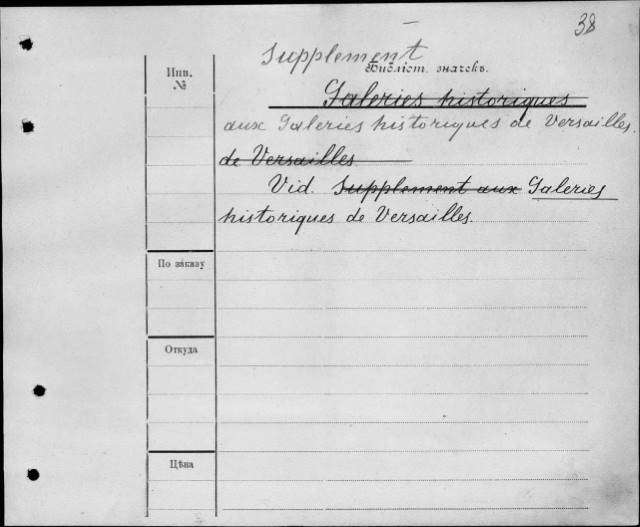 38
Supplement
Инв.
№
Библіот. значекъ.
Galeries historiques
aux Galeries historiques de Versailles.
de Versailles
Vid. Supplement aux Galeries
historiques de Versailles.
По заказу
Откуда
Цѣна